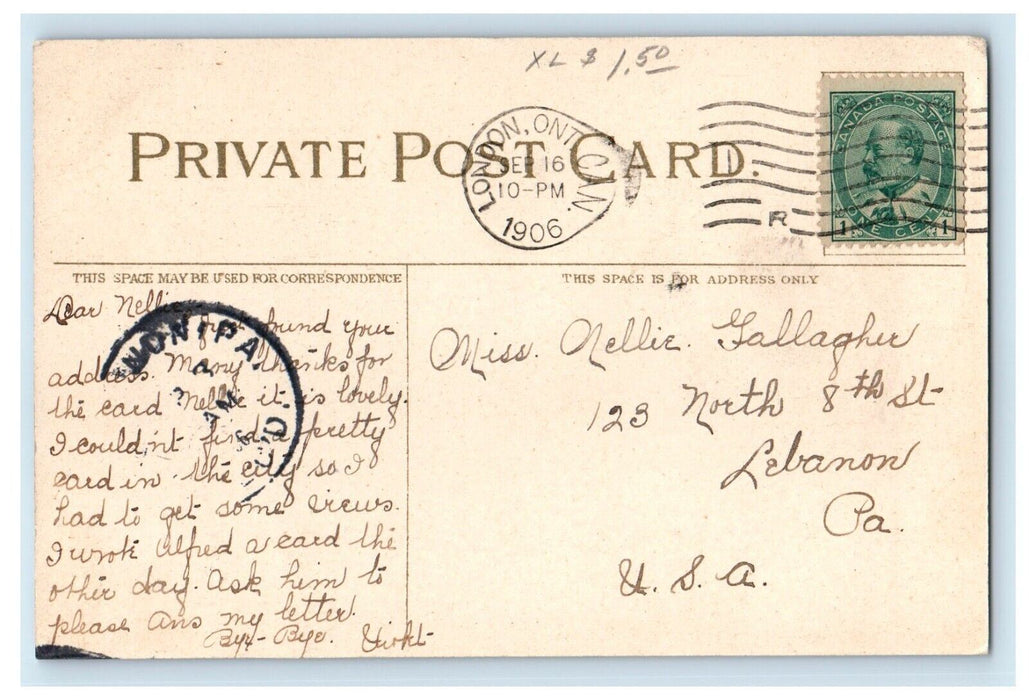 XL $ 1.50
PRIVATE POST CARD.
LONDON, ONT. CAN.
SEP 16
10-PM
1906
R
CANADA POSTAGE
1 ONE CENT 1
THIS SPACE MAY BE USED FOR CORRESPONDENCE
THIS SPACE IS FOR ADDRESS ONLY
Dear Nellie
just found your
address. Many thanks for
the card Nellie it is lovely.
I could'nt find a pretty
card in the city so I
had to get some views.
I wrote Alfred a card the
other day. Ask him to
please Ans my letter.
Bye-Bye.
NON, PA.
AM
REC'D.
Miss. Nellie. Gallagher
123 North 8th St
Lebanon
Pa.
U. S. A.